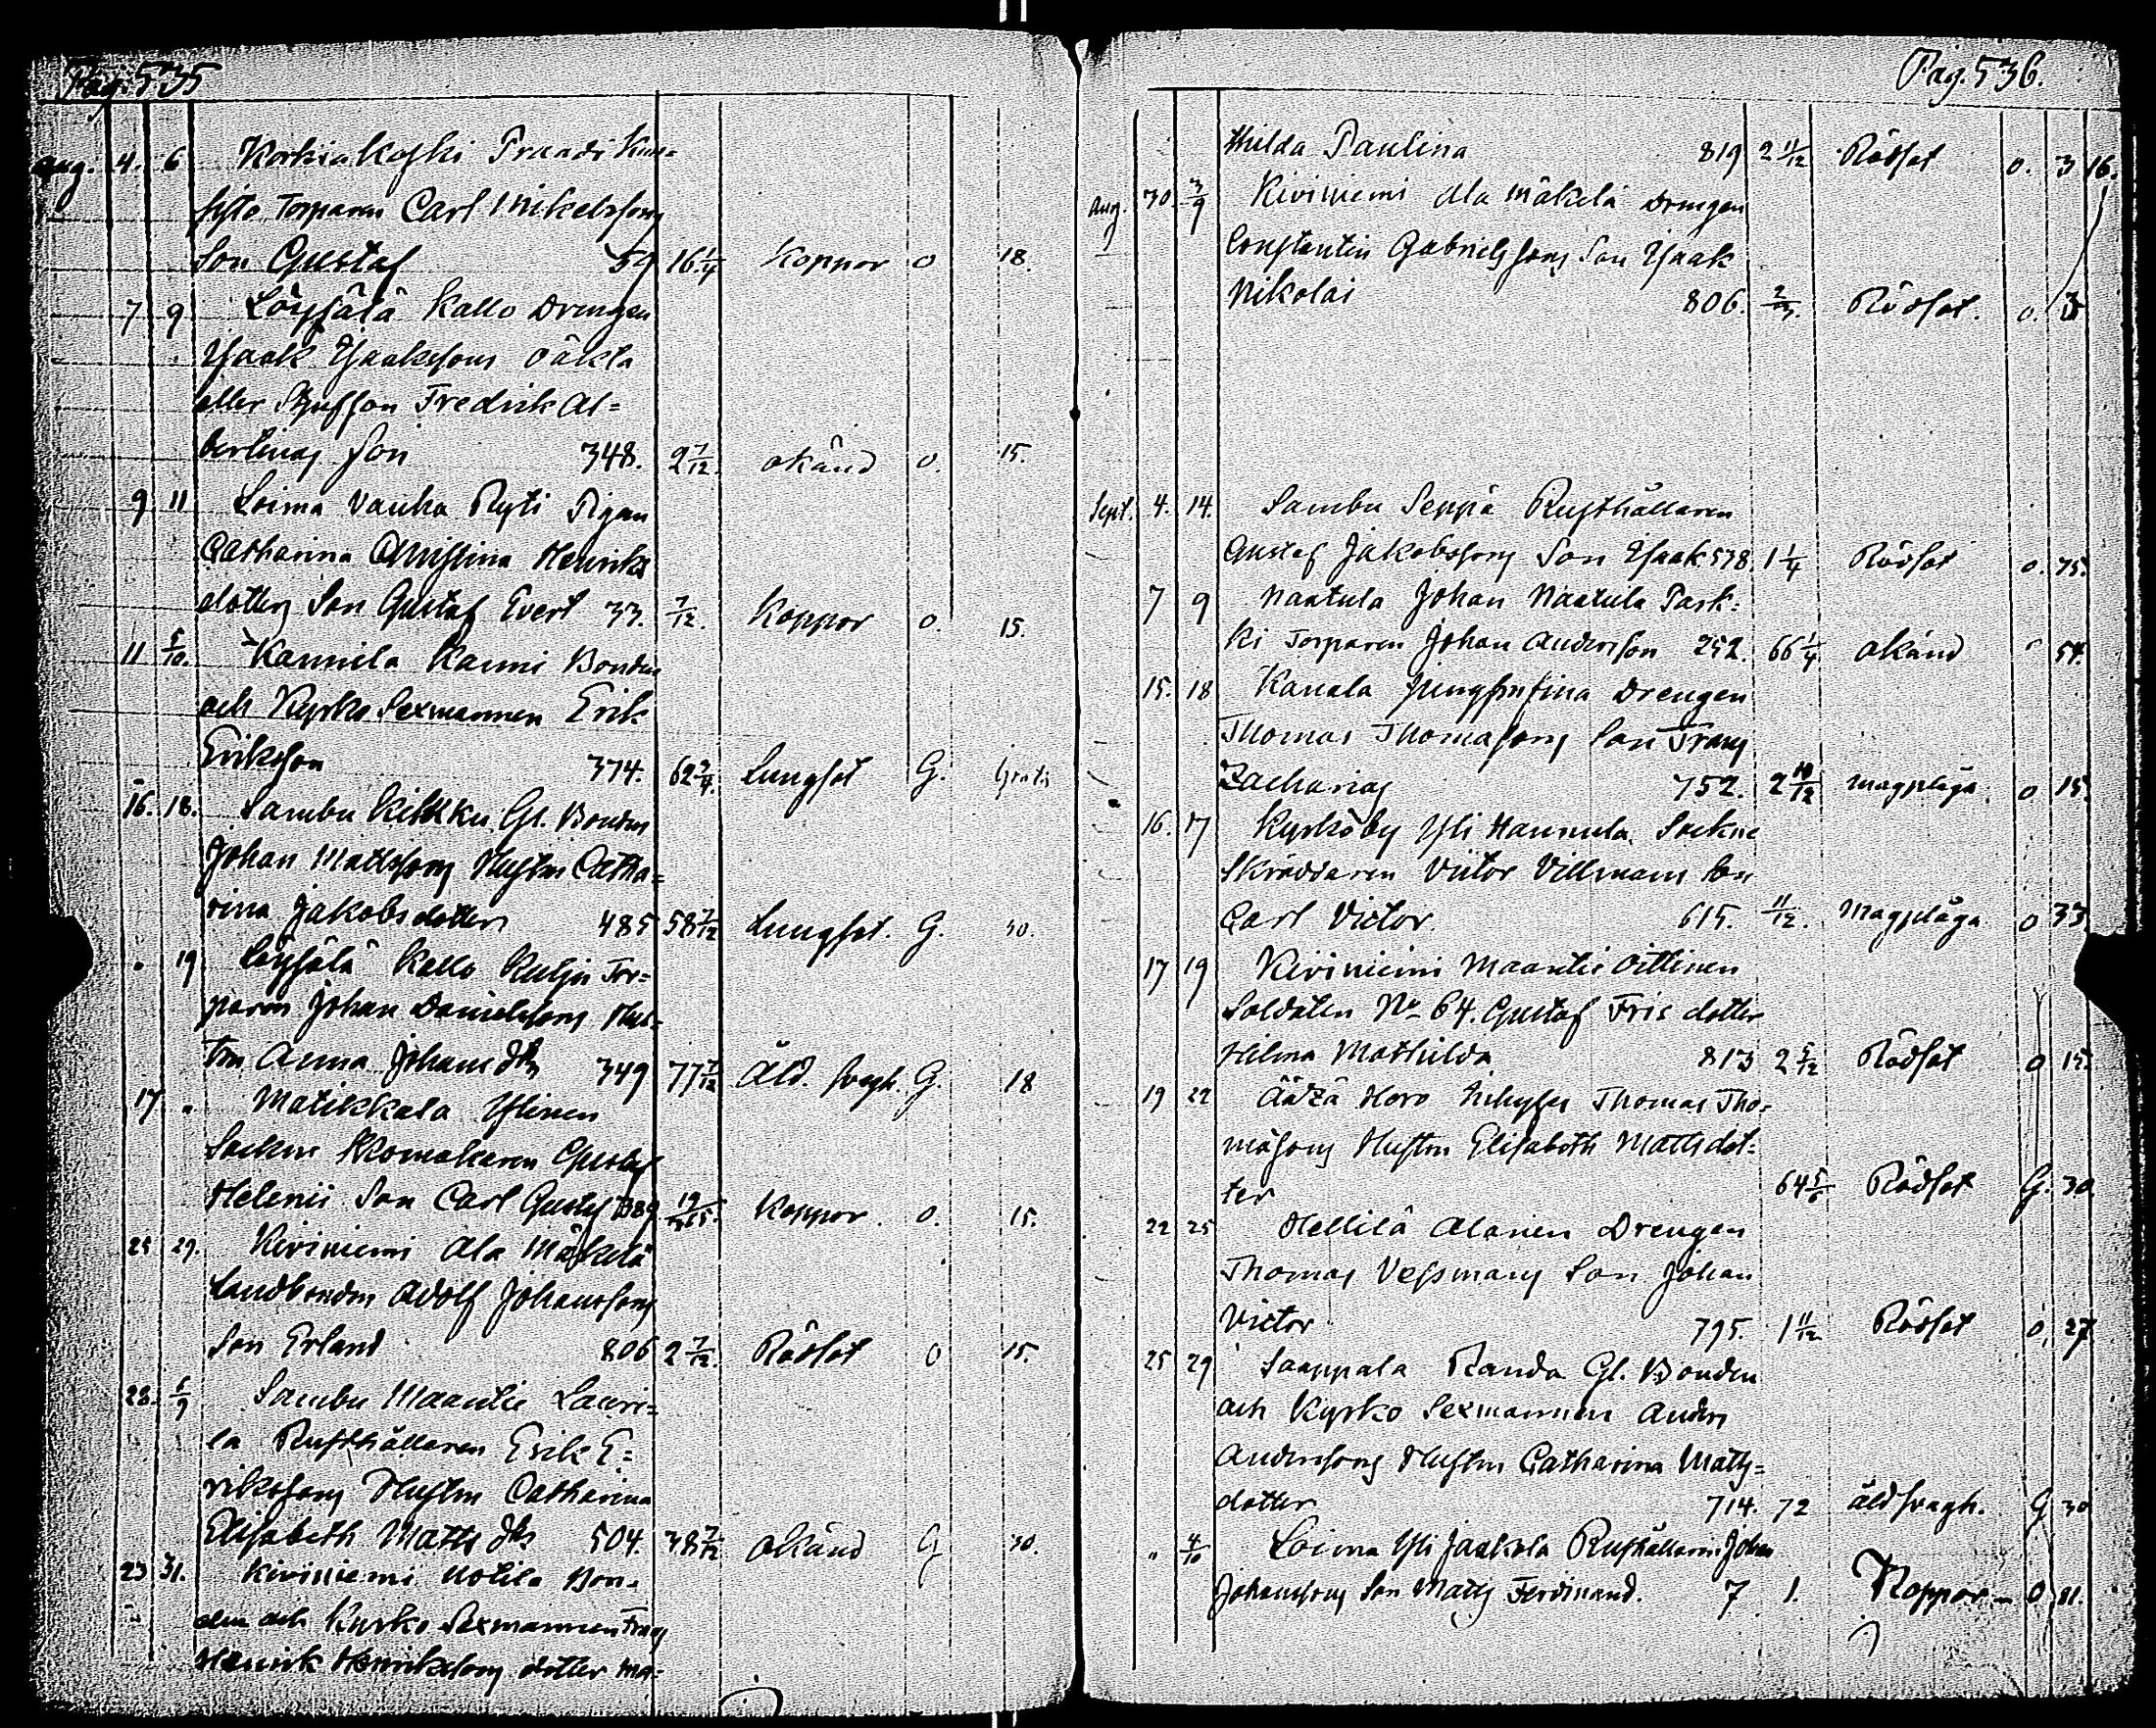 Pag. 535
Aug. 4. 6 Korkiakoski Prundi
Torparen Carl Mikelssons
Son Gustaf 59 16 1/4 Koppor o 18.
7 9 Löysälä Kallo Drengen
Isaak Isaakssons oäkta
eller Styfson Fredrik Al=
bertinas son 348. 2 7/12. okänd o. 15.
9 11 Loima Vanha Ryti Pigan
Catharina Christina Henriks
dotters Son Gustaf Evert 33. 7/12. Koppor o. 15.
11 5/10. Kannila Kanni Bonden
och Kyrko Sexmannen Erik
Eriksson 374. 62 3/4. Lungsot G. Gratis
16. 18. Sambu Kilkku Gl. Bonden
Johan Mattssons Hustru Catha=
rina Jakobsdotter 485 58 7/12 Lungsot. G. 30.
" 19 Löysälä Kallo Tor=
paren Johan Danielssons Hus=
tru Anna Johansdtr 349 77 7/12 Åld. svagh. G. 18
17 " Matikkala Ylinen
Sockne Skomakaren Gustaf
Helenii Son Carl Gustaf 389 19/365. Koppor. o. 15.
25 29. Kiviniemi Ala Mäkelä
Landbonden Adolf Johanssons
Son Erland 806 2 7/12. Rödsot o 15.
28. 5/9 Sambu Maantie Lauri=
la Rusthållaren Erik E=
rikssons Hustru Catharina
Elisabeth Matts dtr 504. 38 7/12 okänd G 30.
23 31. Kiviniemi Notila Bon=
den och Kyrko Sexmannen Frans
Henrik Henrikssons dotter Ma=
Pag. 536.
Hilda Paulina 819 2 11/12 Rödsot o. 3 16.
Aug. 30 3/9 Kiviniemi Ala Mäkelä Drengen
Constantin Gabrielssons Son Isaak
Nikolai 806. 2/3. Rödsot. o. 3
Sept. 4. 14. Sambu Seppä Rusthållaren
Gustaf Jakobssons Son Isaak 578. 1 1/4 Rödsot o. 75.
7 9 Naatula Johan Naatula Park=
ki Torparen Johan Andersson 252. 66 1/4 okänd 54.
15. 18 Kanala Drengen
Thomas Thomassons Son Frans
Zacharias 752. 2 10/12 magplåga. o 15.
16. 17 Kyrkoby Yli Hannula Sockne
Skräddaren Victor Villmans son
Carl Victor. 615. 11/12. Magplåga o 33
17 19 Kiviniemi Maantie Oittinen
Soldaten No 64. Gustaf Fris dotter
Hilma Mathilda 813 2 5/12 Rödsot o 15.
19 22 Äätzä Hero Inhyses Thomas Tho=
massons Hustru Elisabeth Mattsdot=
ter 64 5/6 Rödsot G. 30
22 25 Hellilä Alanen Drengen
Thomas Vessmans Son Johan
Victor 795. 1 11/12 Rödsot o. 27
25 29 Saappala Randa Gl. Bonden
och Kyrko Sexmannen Anders
Anderssons Hustru Catharina Matts=
dotter 714. 72 åld svagh. G 30
" 4/10 Loima Yli Jaakola Rusthållaren Johan
Johanssons Son Matts Ferdinand. 7 1. Koppor o 81.